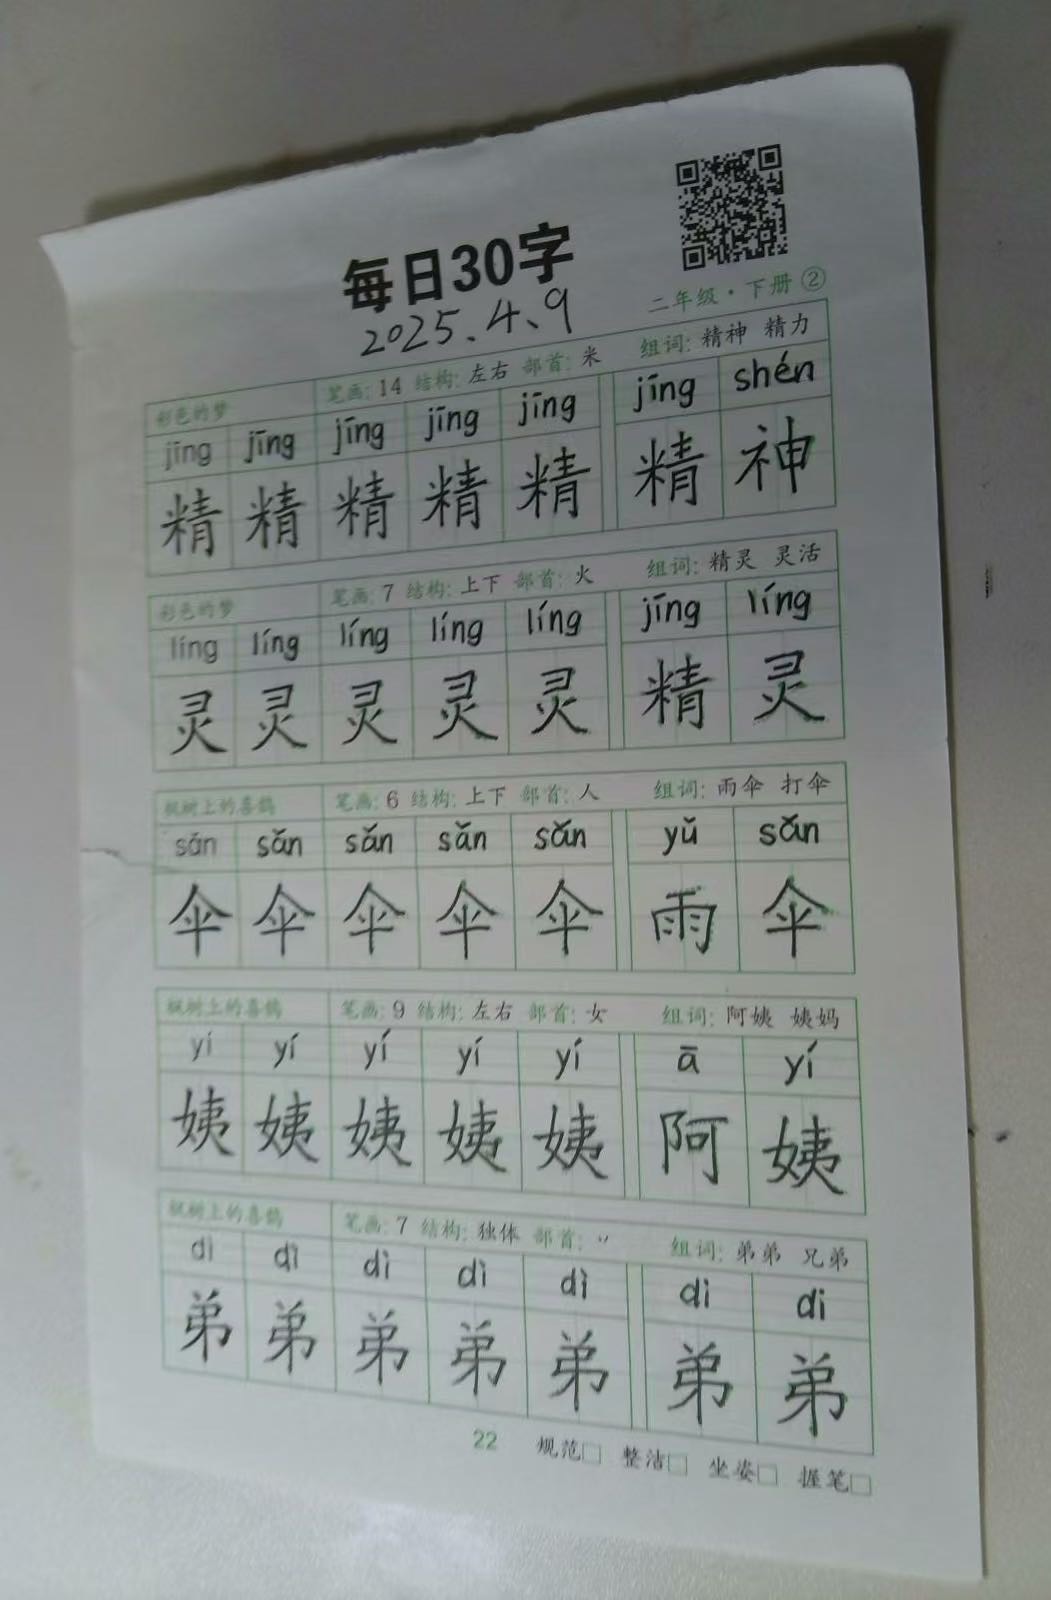 每日30字
2025.4.9
二年级·下册②
彩色的梦 笔画:14 结构:左右 部首:米 组词:精神 精力
jīng jīng jīng jīng jīng jīng shén
精 精 精 精 精 精 神
彩色的梦 笔画:7 结构:上下 部首:火 组词:精灵 灵活
líng líng líng líng líng jīng líng
灵 灵 灵 灵 灵 精 灵
枫树上的喜鹊 笔画:6 结构:上下 部首:人 组词:雨伞 打伞
sǎn sǎn sǎn sǎn sǎn yǔ sǎn
伞 伞 伞 伞 伞 雨 伞
枫树上的喜鹊 笔画:9 结构:左右 部首:女 组词:阿姨 姨妈
yí yí yí yí yí ā yí
姨 姨 姨 姨 姨 阿 姨
枫树上的喜鹊 笔画:7 结构:独体 部首:丷 组词:弟弟 兄弟
dì dì dì dì dì dì di
弟 弟 弟 弟 弟 弟 弟
22 规范□ 整洁□ 坐姿□ 握笔□